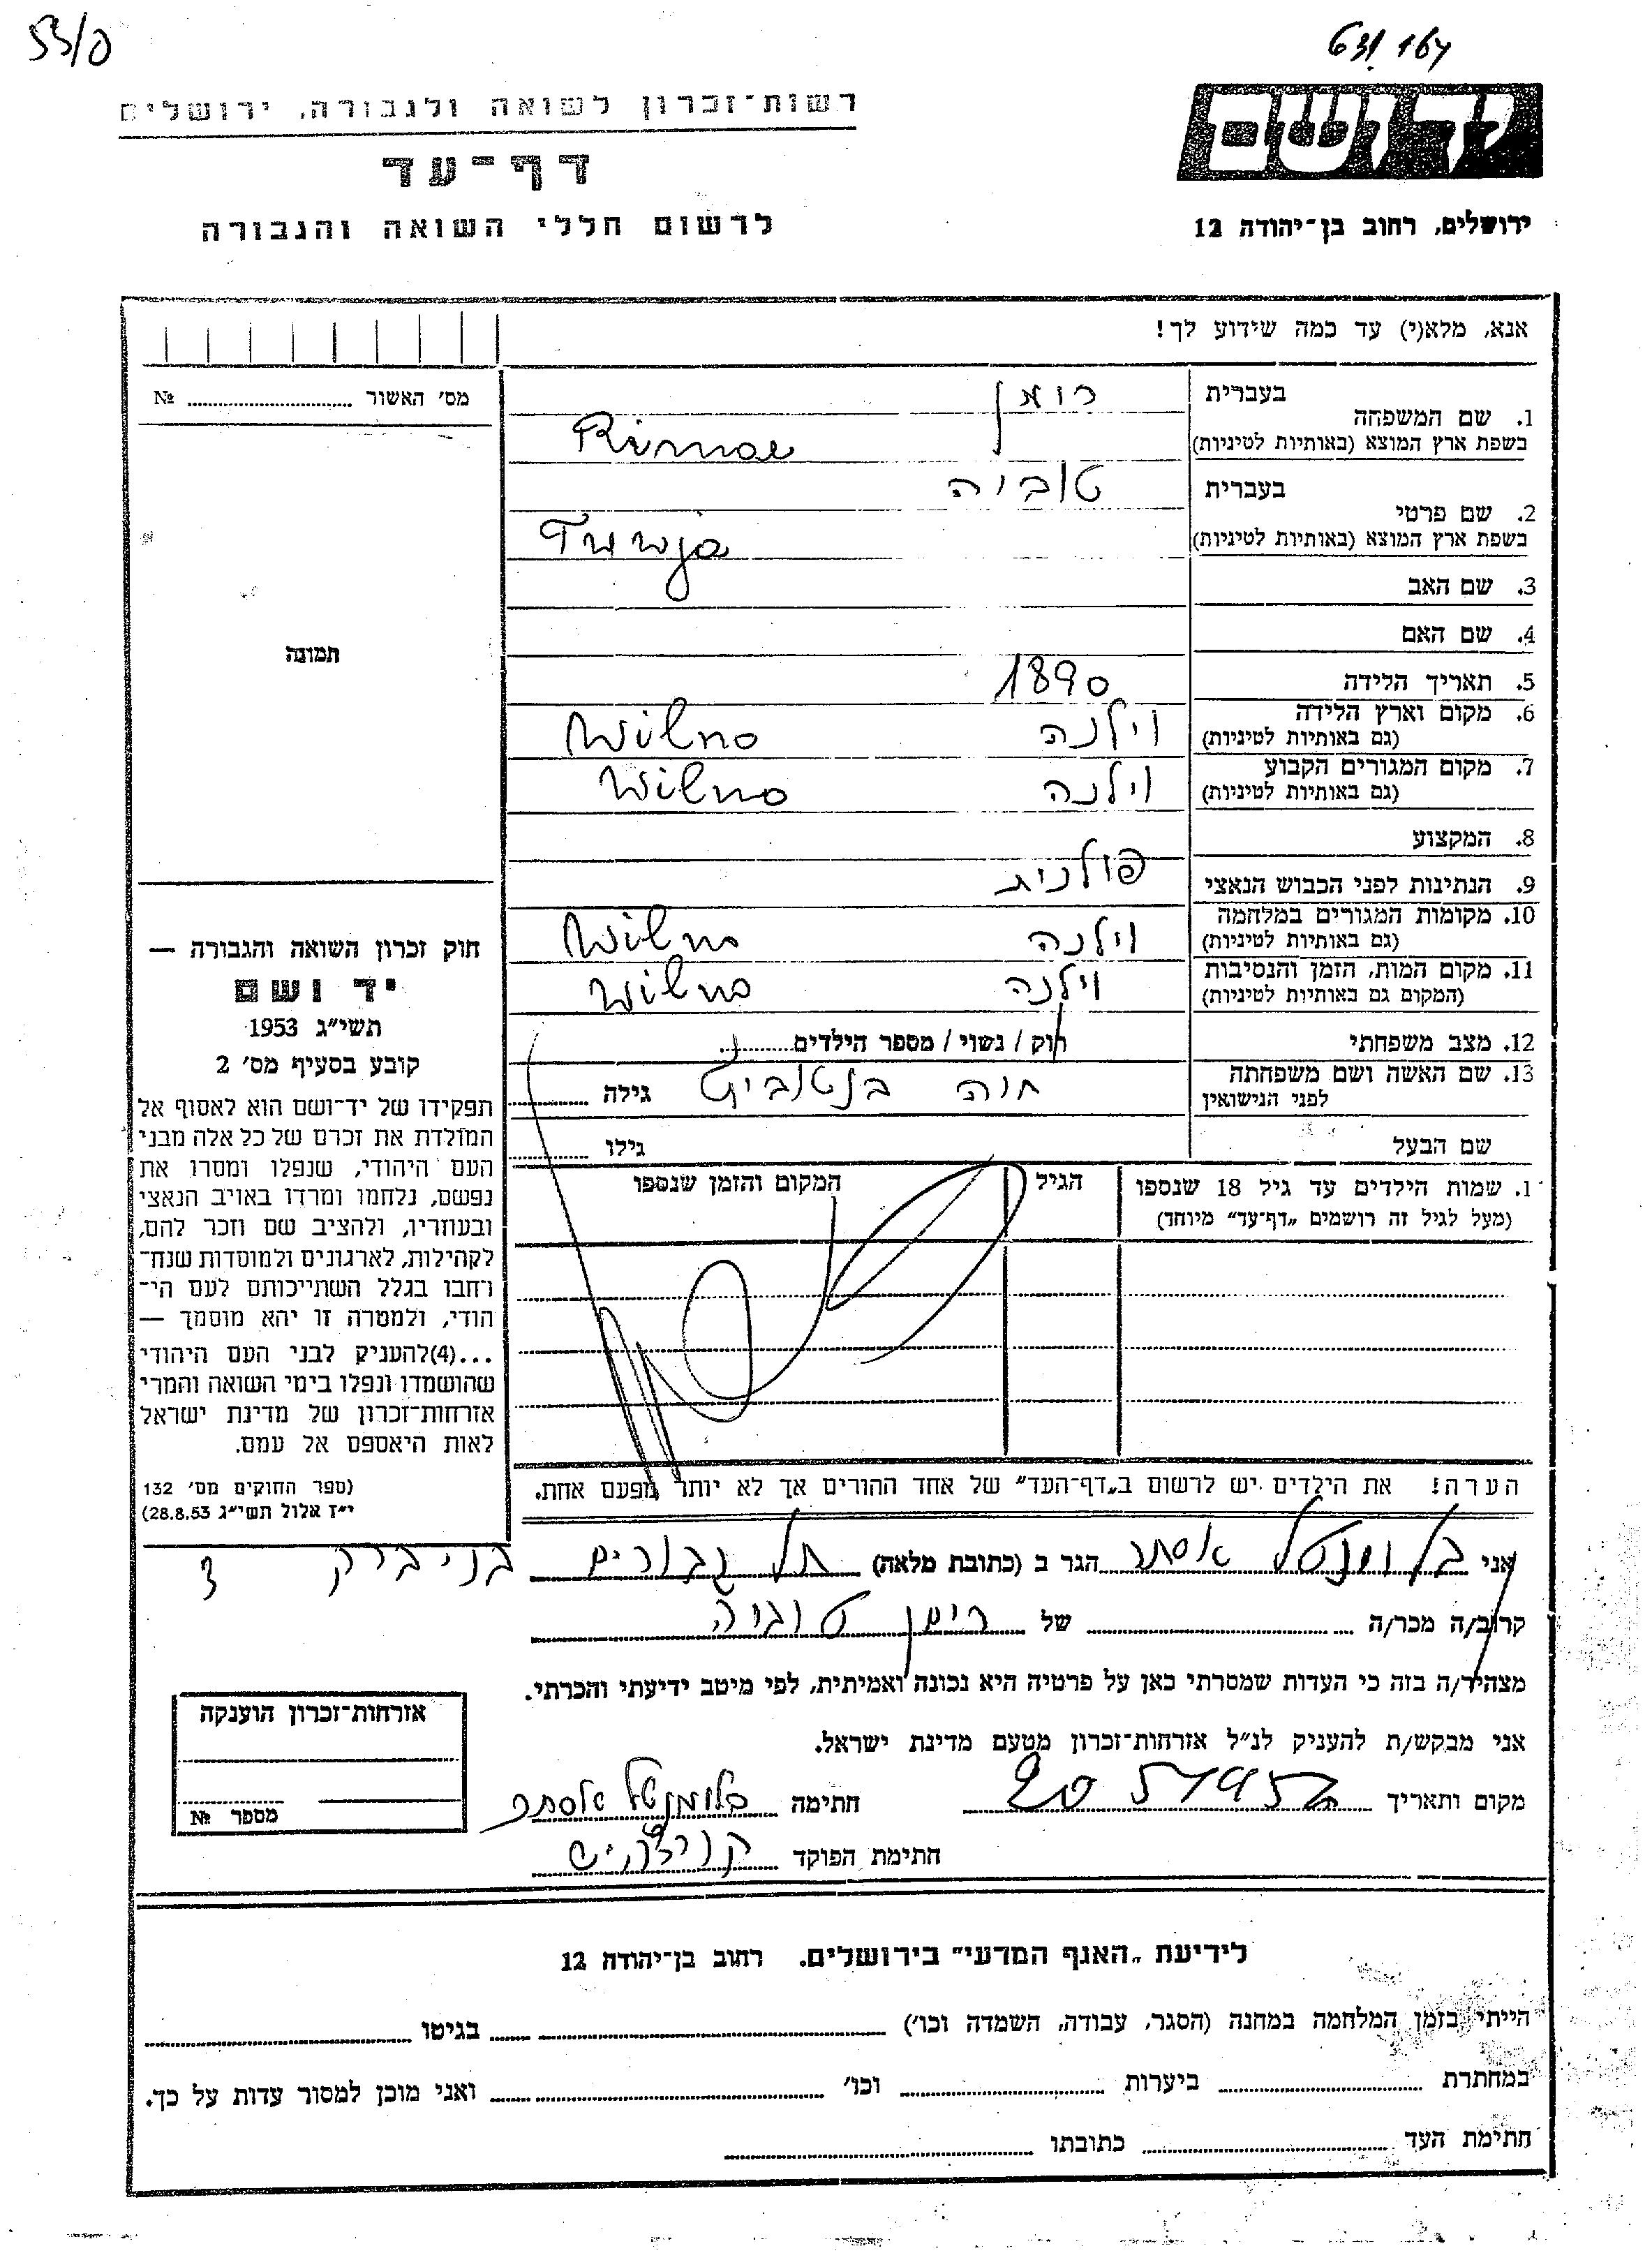 55/0
63/167
רשות־זכרון לשואה ולגבורה, ירושלים
דף־עד
לרשום חללי השואה והגבורה
יד ושם
ירושלים, רחוב בן־יהודה 12
אנא, מלא(י) עד כמה שידוע לך!
מס' האשור № 
בעברית
1. שם המשפחה
בשפת ארץ המוצא (באותיות לטיניות)
2. שם פרטי בעברית טוביה
בשפת ארץ המוצא (באותיות לטיניות) Tuwja
3. שם האב
4. שם האם
תמונה
5. תאריך הלידה 1890
6. מקום וארץ הלידה וילנה Wilno
(גם באותיות לטיניות)
7. מקום המגורים הקבוע וילנה Wilno
(גם באותיות לטיניות)
8. המקצוע
9. הנתינות לפני הכבוש הנאצי פולנית
10. מקומות המגורים במלחמה וילנה Wilno
(גם באותיות לטיניות)
11. מקום המות, הזמן והנסיבות וילנה Wilno
(המקום גם באותיות לטיניות)
12. מצב משפחתי רוק / נשוי / מספר הילדים
13. שם האשה ושם משפחתה חוה גילה
לפני הנישואין
שם הבעל גילו
1. שמות הילדים עד גיל 18 שנספו הגיל המקום והזמן שנספו
(מעל לגיל זה רושמים „דף־עד" מיוחד)
הערה! את הילדים יש לרשום ב„דף־העד" של אחד ההורים אך לא יותר מפעם אחת.
חוק זכרון השואה והגבורה —
יד ושם
תשי"ג 1953
קובע בסעיף מס' 2
תפקידו של יד־ושם הוא לאסוף אל
המולדת את זכרם של כל אלה מבני
העם היהודי, שנפלו ומסרו את
נפשם, נלחמו ומרדו באויב הנאצי
ובעוזריו, ולהציב שם וזכר להם,
לקהילות, לארגונים ולמוסדות שנח־
רחבו בגלל השתייכותם לעם הי־
הודי, ולמטרה זו יהא מוסמך —
...(4)להעניק לבני העם היהודי
שהושמדו ונפלו בימי השואה והמרי
אזרחות־זכרון של מדינת ישראל
לאות היאספם אל עמם.
(ספר החוקים מס' 132
י"ז אלול תשי"ג 28.8.53)
אני בלומנטל אסתר הגר ב (כתובת מלאה) תל גבורים בני ברק
קרוב/ה מכר/ה של טוביה
מצהיר/ה בזה כי העדות שמסרתי כאן על פרטיה היא נכונה ואמיתית, לפי מיטב ידיעתי והכרתי.
אני מבקש/ת להעניק לנ"ל אזרחות־זכרון מטעם מדינת ישראל.
מקום ותאריך חתימה בלומנטל אסתר
חתימת הפוקד
אזרחות־זכרון הוענקה
מספר №
לידיעת „האגף המדעי" בירושלים. רחוב בן־יהודה 12
הייתי בזמן המלחמה במחנה (הסגר, עבודה, השמדה וכו') בגיטו
במחתרת ביערות וכו' ואני מוכן למסור עדות על כך.
חתימת העד כתובתו